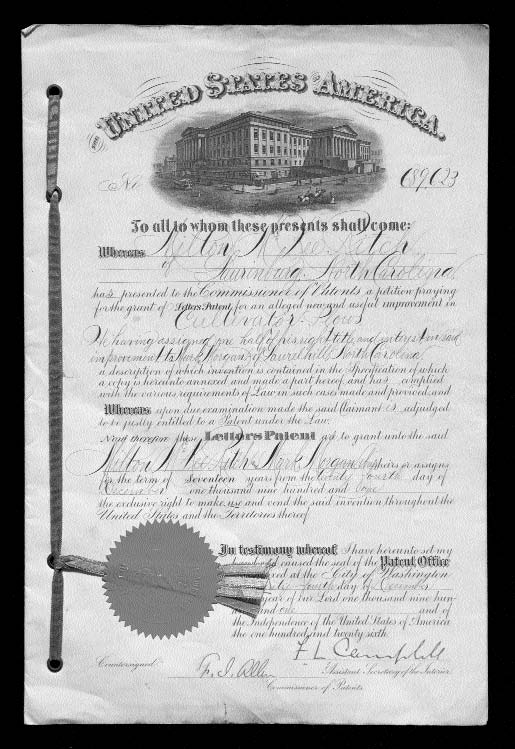 THE UNITED STATES OF AMERICA.
No. 689,623
To all to whom these presents shall come:
Whereas Milton
of Laurinburg, North Carolina,
has presented to the Commissioner of Patents a petition praying
for the grant of Letters Patent for an alleged new and useful improvement in
Cultivator-Plows,
He having assigned one half of his right, title, and interest in said
improvement to Mark Morgan, of Laurelhill, North Carolina,
a description of which invention is contained in the Specification of which
a copy is hereunto annexed and made a part hereof, and has complied
with the various requirements of Law in such cases made and provided, and
Whereas upon due examination made the said Claimant is adjudged
to be justly entitled to a Patent under the Law.
Now therefore these Letters Patent are to grant unto the said
Milton Mark Morgan, heirs or assigns
for the term of Seventeen years from the twenty fourth day of
December one thousand nine hundred and one
the exclusive right to make, use and vend the said invention throughout the
United States and the Territories thereof.
In testimony whereof I have hereunto set my
caused the seal of the Patent Office
at the City of Washington
fourth day of December
year of our Lord one thousand nine hun-
and one and of
the Independence of the United States of America
the one hundred and twenty sixth.
F. L. Campbell
Countersigned F. I. Allen Assistant Secretary of the Interior.
Commissioner of Patents.